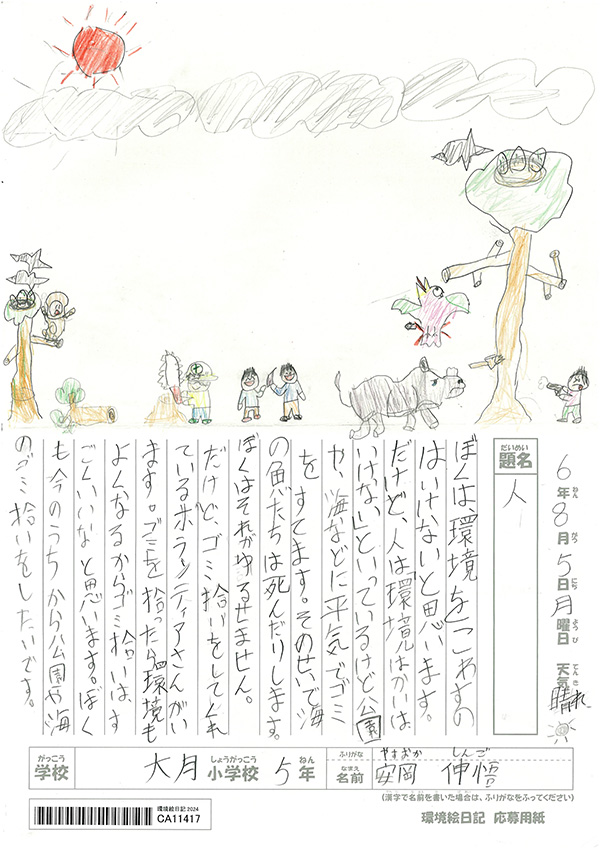 6年8月5日月曜日 天気 晴れ
ねん がつ にち ようび てんき
だいめい
題名
人
ぼくは、環境をこわすの
はいけないと思います。
だけど、人は「環境はかいは、
いけない」といっているけど公園
や、海などに平気でゴミ
をすてます。そのせいで海
の魚たちは死んだりします。
ぼくはそれがゆるせません。
だけど、ゴミ拾いをしてくれ
ているボランティアさんがい
ます。ゴミを拾ったら環境も
よくなるからゴミ拾いは、す
ごくいいなと思います。ぼく
も今のうちから公園や海
のゴミ拾いをしたいです。
がっこう しょうがっこう ねん
学校 大月 小学校 5年
ふりがな やすおか しんご
なまえ
名前 安岡 伸悟
(漢字で名前を書いた場合は、ふりがなをふってください)
環境絵日記2024
CA11417
環境絵日記 応募用紙